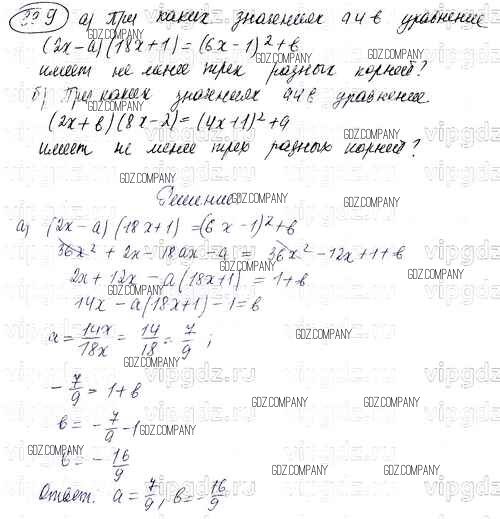 339 а) При каких значениях a и b уравнение
(2x-a)(18x+1)=(6x-1)²+b
имеет не менее трех разных корней?
б) При каких значениях a и b уравнение
(2x+b)(8x-2)=(4x+1)²+a
имеет не менее трех разных корней?
Решение:
а) (2x-a)(18x+1)=(6x-1)²+b
36x²+2x-18ax-a = 36x²-12x+1+b
2x+12x-a(18x+1)=1+b
14x-a(18x+1)-1=b
a=14x/18x=14/18=7/9;
-7/9=1+b
b=-7/9-1
b=-16/9
Ответ: a=7/9, b=-16/9
GDZ.COMPANY
vipgdz.ru